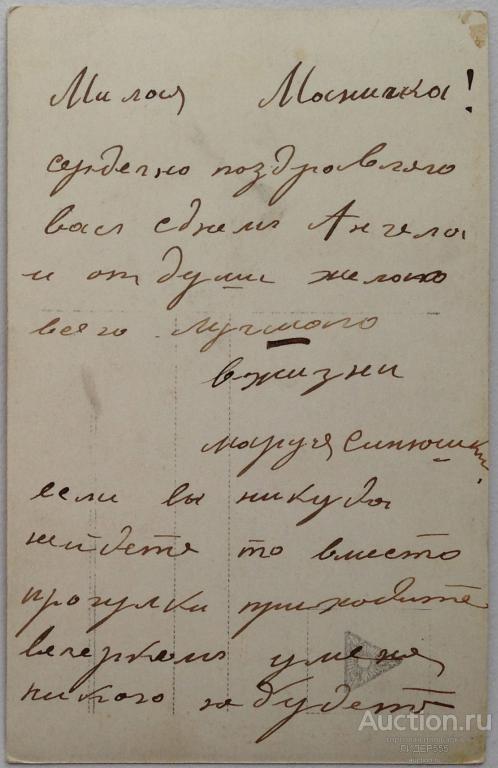 Милая Маничка!
сердечно поздравляю
васъ сднемъ Ангела
и от души желаю
всего лучшаго
вжизни
маруся
если вы никуда
нейдете то вместо
прогулки приходите
вечеркомъ уменя
никого не будетъ
Auction.ru
ЛИДЕР555
auction.ru